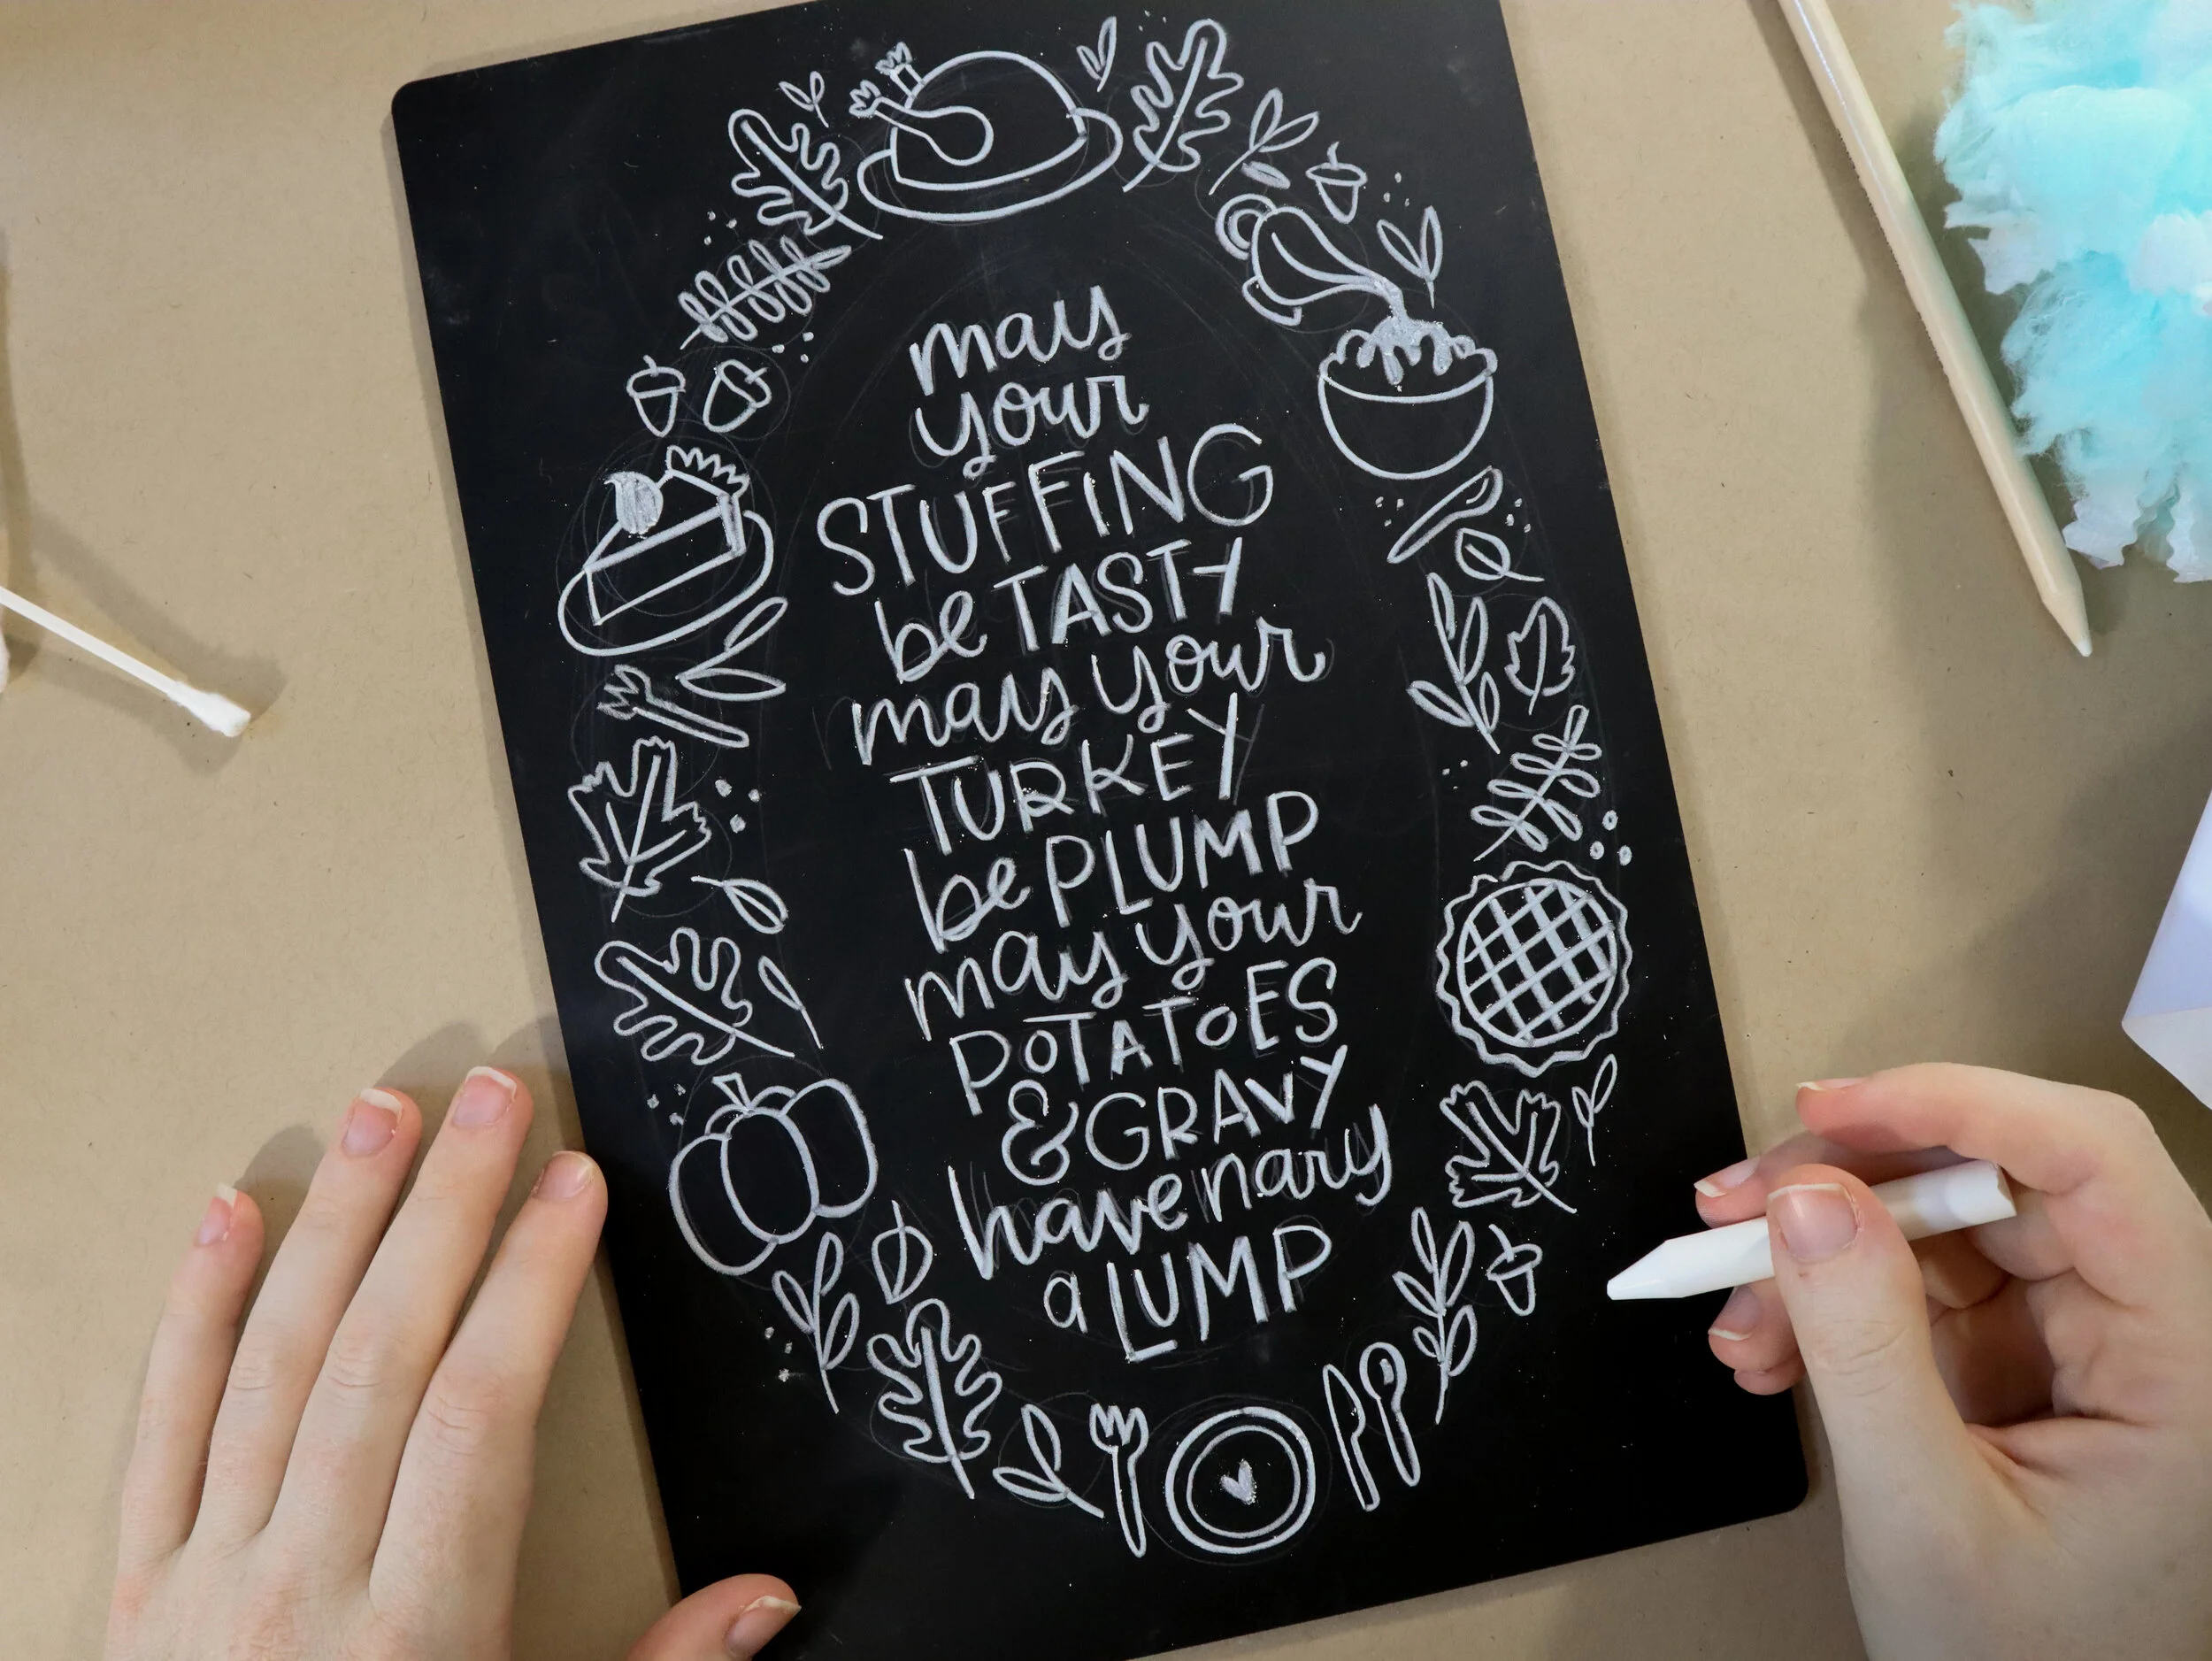 may
your
STUFFING
be TASTY
may your
TURKEY
be PLUMP
may your
POTATOES
& GRAVY
have nary
a LUMP